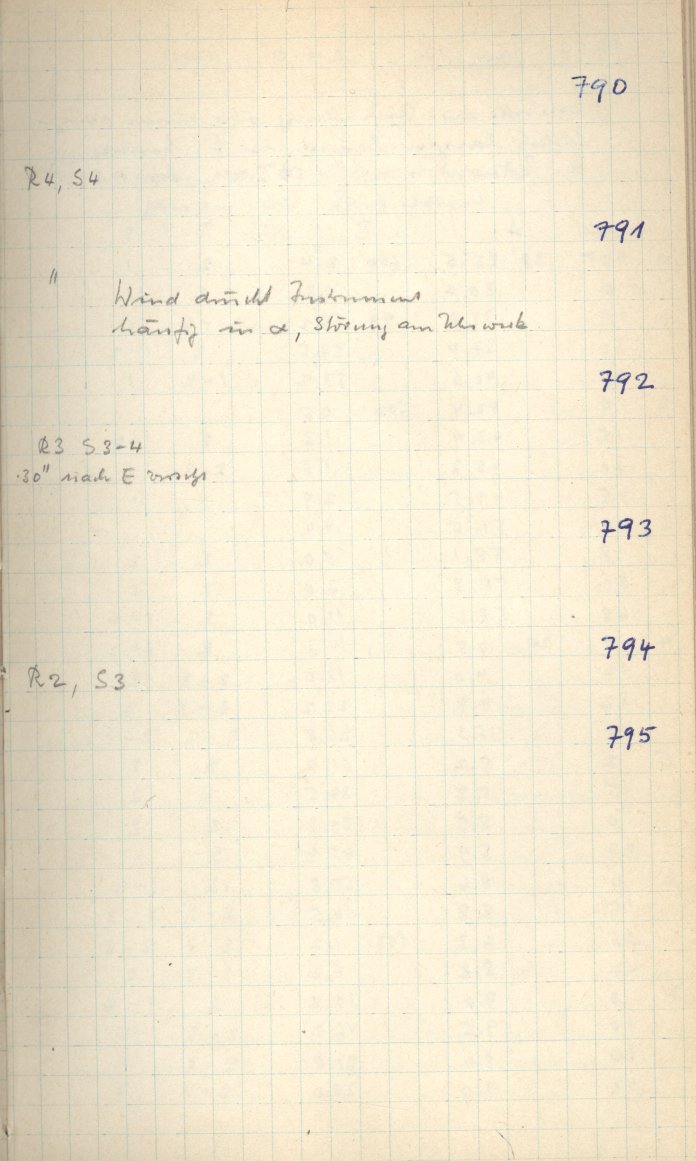 790
R4, S4
791
"
Wind drückt Instrument
häufig in α, Störung am Uhrwerk
792
R3 S3-4
30" nach E versch.
793
794
R2, S3
795